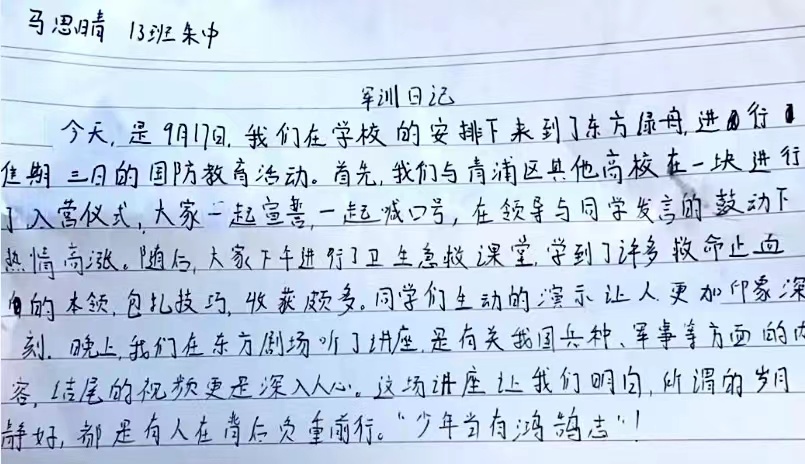 马思晴 13班朱中
军训日记
今天，是9月17日，我们在学校的安排下来到了东方绿舟，进行
为期三日的国防教育活动。首先，我们与青浦区其他高校在一块进行
了入营仪式，大家一起宣誓，一起喊口号，在领导与同学发言的鼓动下
热情高涨。随后，大家下午进行了卫生急救课堂，学到了许多救命止血
的本领，包扎技巧，收获颇多。同学们生动的演示让人更加印象深
刻。晚上，我们在东方剧场听了讲座，是有关我国兵种、军事等方面的内
容，结尾的视频更是深入人心。这场讲座让我们明白，所谓的岁月
静好，都是有人在背后负重前行。“少年当有鸿鹄志”！